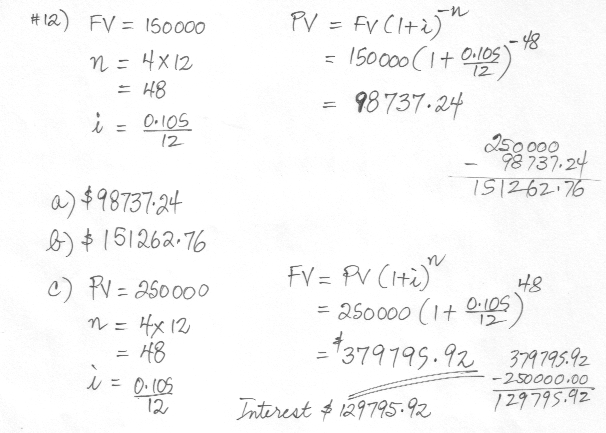 #12) FV = 150000
n = 4×12
= 48
i = 0.105/12
PV = FV(1+i)^-n
= 150000(1 + 0.105/12)^-48
= 98737.24
250000
- 98737.24
151262.76
a) $98737.24
b) $151262.76
c) PV = 250000
n = 4×12
= 48
i = 0.105/12
FV = PV(1+i)^n
= 250000(1 + 0.105/12)^48
= $379795.92
Interest $129795.92
379795.92
-250000.00
129795.92